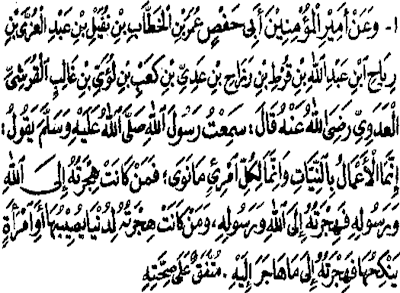 ١- وَعَنْ أَمِيْرِ الْمُؤْمِنِيْنَ أَبِى حَفْصٍ عُمَرَ بْنِ الْخَطَّابِ بْنِ نُفَيْلِ بْنِ عَبْدِ الْعُزَّى بْنِ
رِيَاحِ ابْنِ عَبْدِ اللهِ بْنِ قُرْطِ بْنِ رَزَاحِ بْنِ عَدِيِّ بْنِ كَعْبِ بْنِ لُؤَيِّ بْنِ غَالِبٍ الْقُرَشِيِّ
الْعَدَوِيِّ رَضِىَ اللهُ عَنْهُ قَالَ: سَمِعْتُ رَسُوْلَ اللهِ صَلَّى اللهُ عَلَيْهِ وَسَلَّمَ يَقُوْلُ:
إِنَّمَا الْأَعْمَالُ بِالنِّيَّاتِ وَإِنَّمَا لِكُلِّ امْرِئٍ مَا نَوَى؛ فَمَنْ كَانَتْ هِجْرَتُهُ إِلَى اللهِ
وَرَسُوْلِهِ فَهِجْرَتُهُ إِلَى اللهِ وَرَسُوْلِهِ، وَمَنْ كَانَتْ هِجْرَتُهُ لِدُنْيَا يُصِيْبُهَا أَوِ امْرَأَةٍ
يَنْكِحُهَا فَهِجْرَتُهُ إِلَى مَا هَاجَرَ إِلَيْهِ. مُتَّفَقٌ عَلَى صِحَّتِهِ